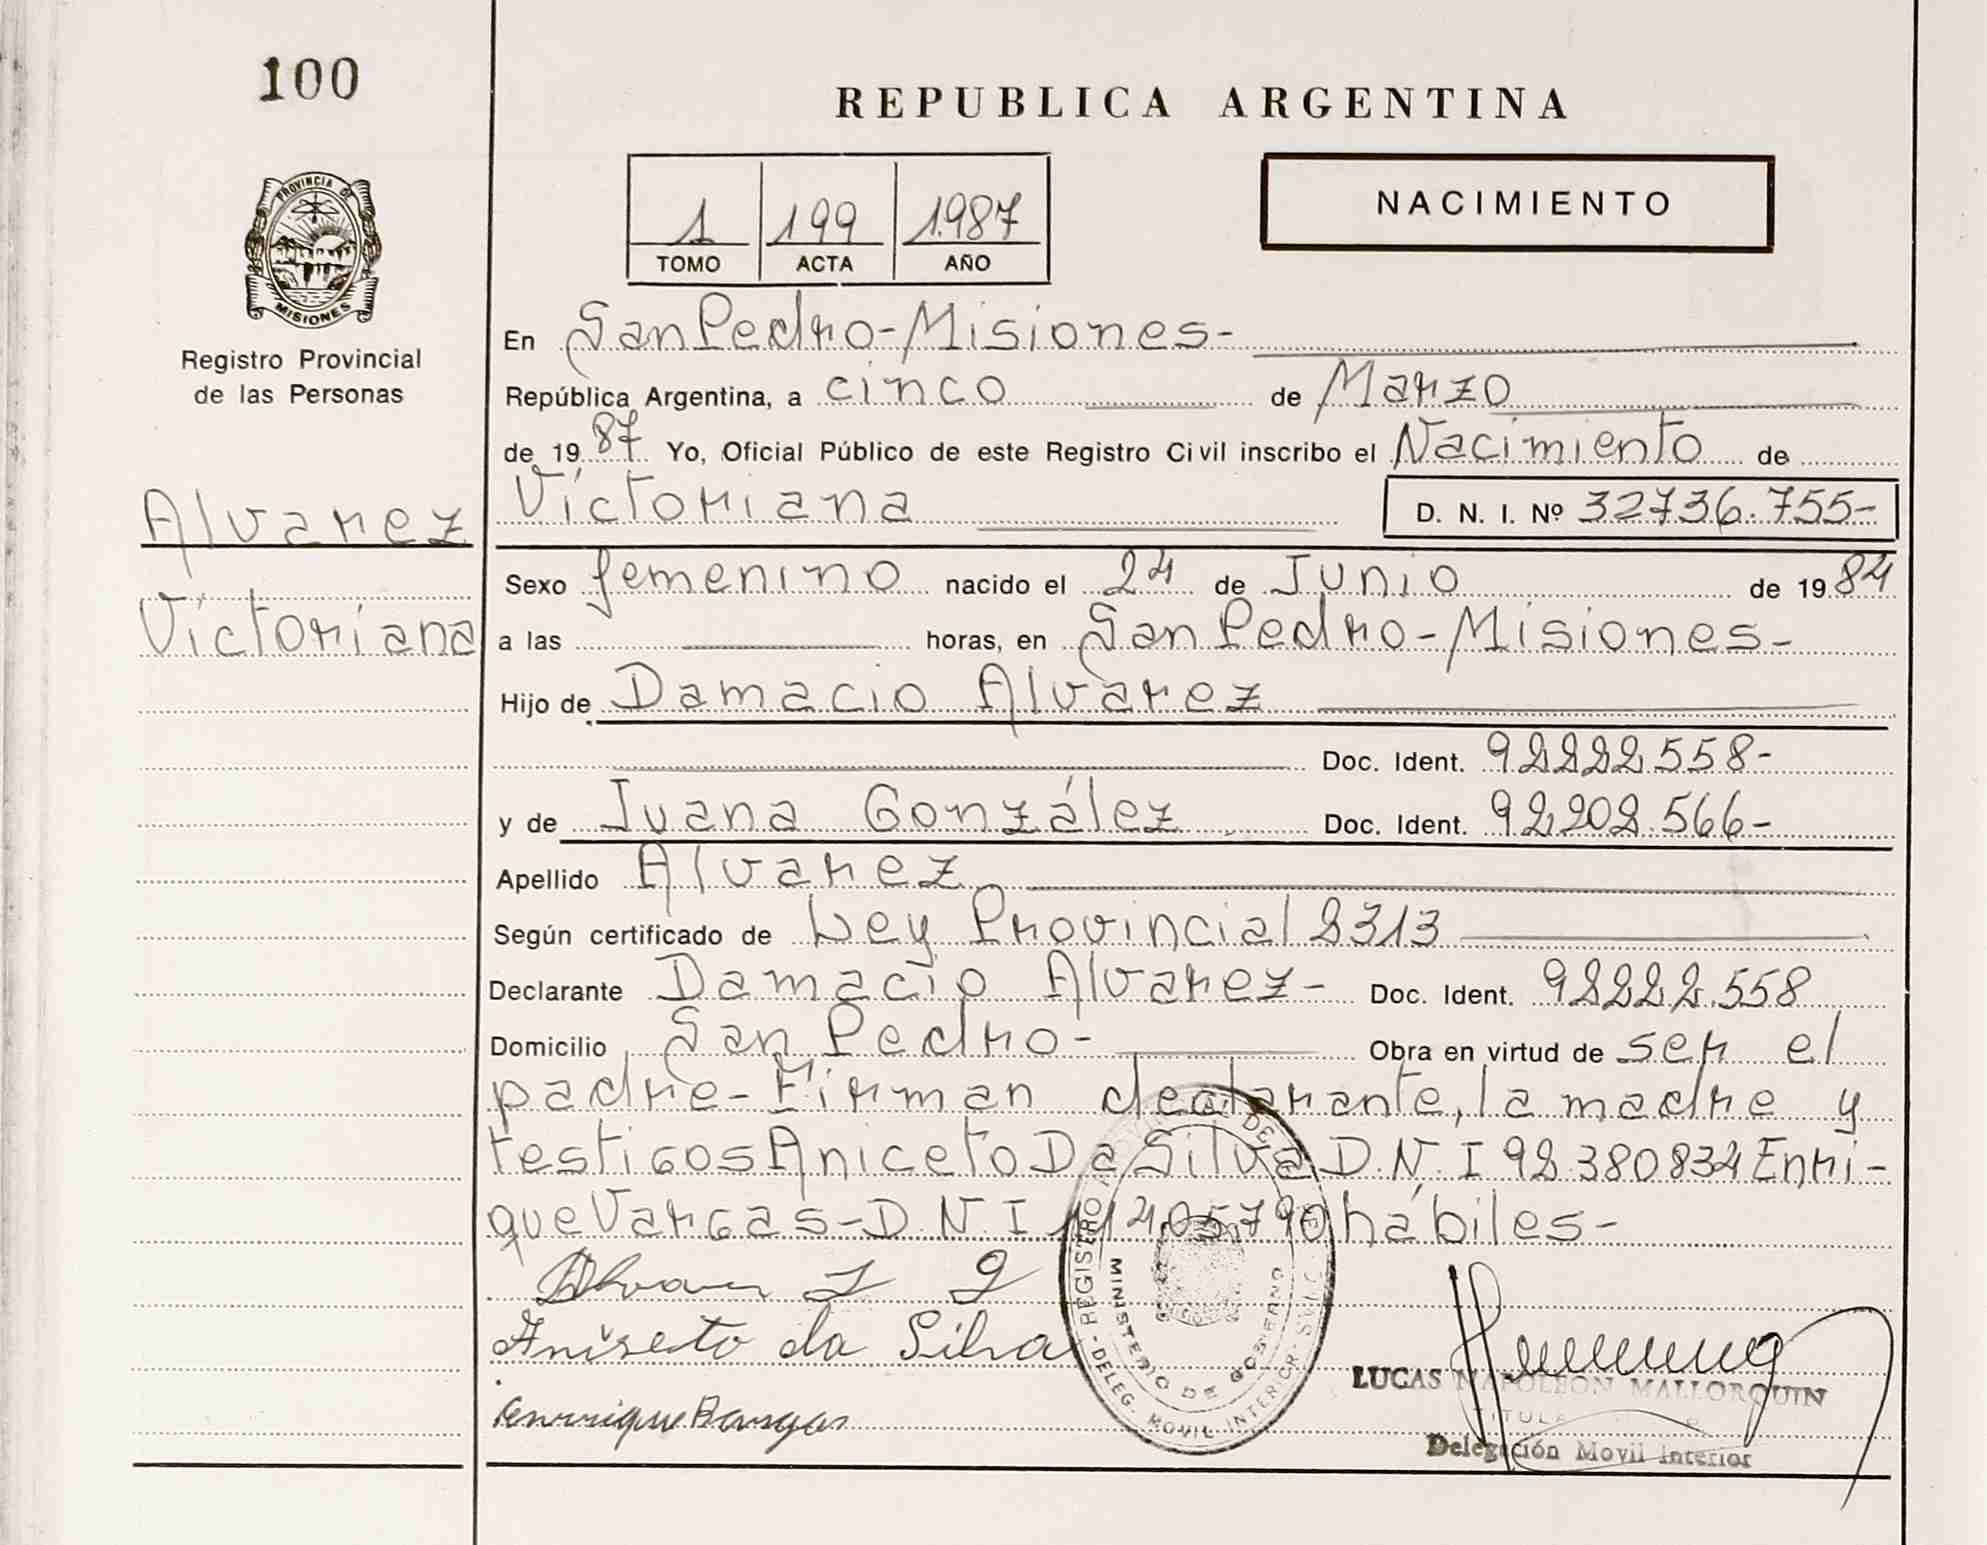 100
REPUBLICA ARGENTINA
PROVINCIA DE
MISIONES
Registro Provincial
de las Personas
1 199 1987
TOMO ACTA AÑO
NACIMIENTO
En San Pedro-Misiones-
República Argentina, a cinco de Marzo
de 1987 Yo, Oficial Público de este Registro Civil inscribo el Nacimiento de
Alvarez
Victoriana D. N. I. Nº 32736.755-
Sexo femenino nacido el 24 de Junio de 1984
Victoriana
a las horas, en San Pedro-Misiones-
Hijo de Damacio Alvarez
Doc. Ident. 92222558-
y de Juana González Doc. Ident. 92202.566-
Apellido Alvarez
Según certificado de Ley Provincial 2313
Declarante Damacio Alvarez- Doc. Ident. 92222.558
Domicilio San Pedro- Obra en virtud de ser el
padre-Firman declarante, la madre y
testigos Aniceto Da Silva D.N.I 92.380834 Enri-
que Vargas-D.N.I 11405790 hábiles-
Aniseto da Silva
enrrique Bargas
REGISTRO DE
MINISTERIO DE GOBIERNO
DELEG. MOVIL INTERIOR
LUCAS NAPOLEON MALLORQUIN
TITULAR
Delegación Movil Interior